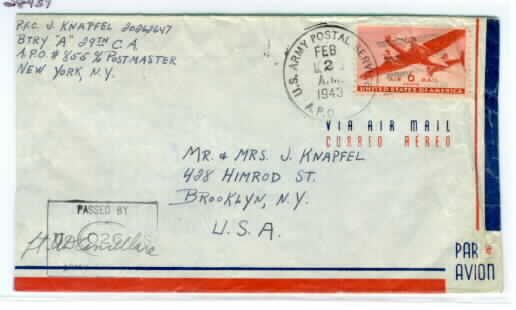 P.F.C. J. KNAPFEL 20262647
BTRY "A" 29TH C.A.
A.P.O. # 855 % POSTMASTER
NEW YORK, N.Y.
U.S. ARMY POSTAL SERVICE
FEB
2
A.M.
1943
A.P.O.
AIR 6¢ MAIL
UNITED STATES OF AMERICA
VIA AIR MAIL
CORREO AEREO
MR. & MRS. J. KNAPFEL
428 HIMROD ST.
BROOKLYN, N.Y.
U.S.A.
PASSED BY
PAR
AVION